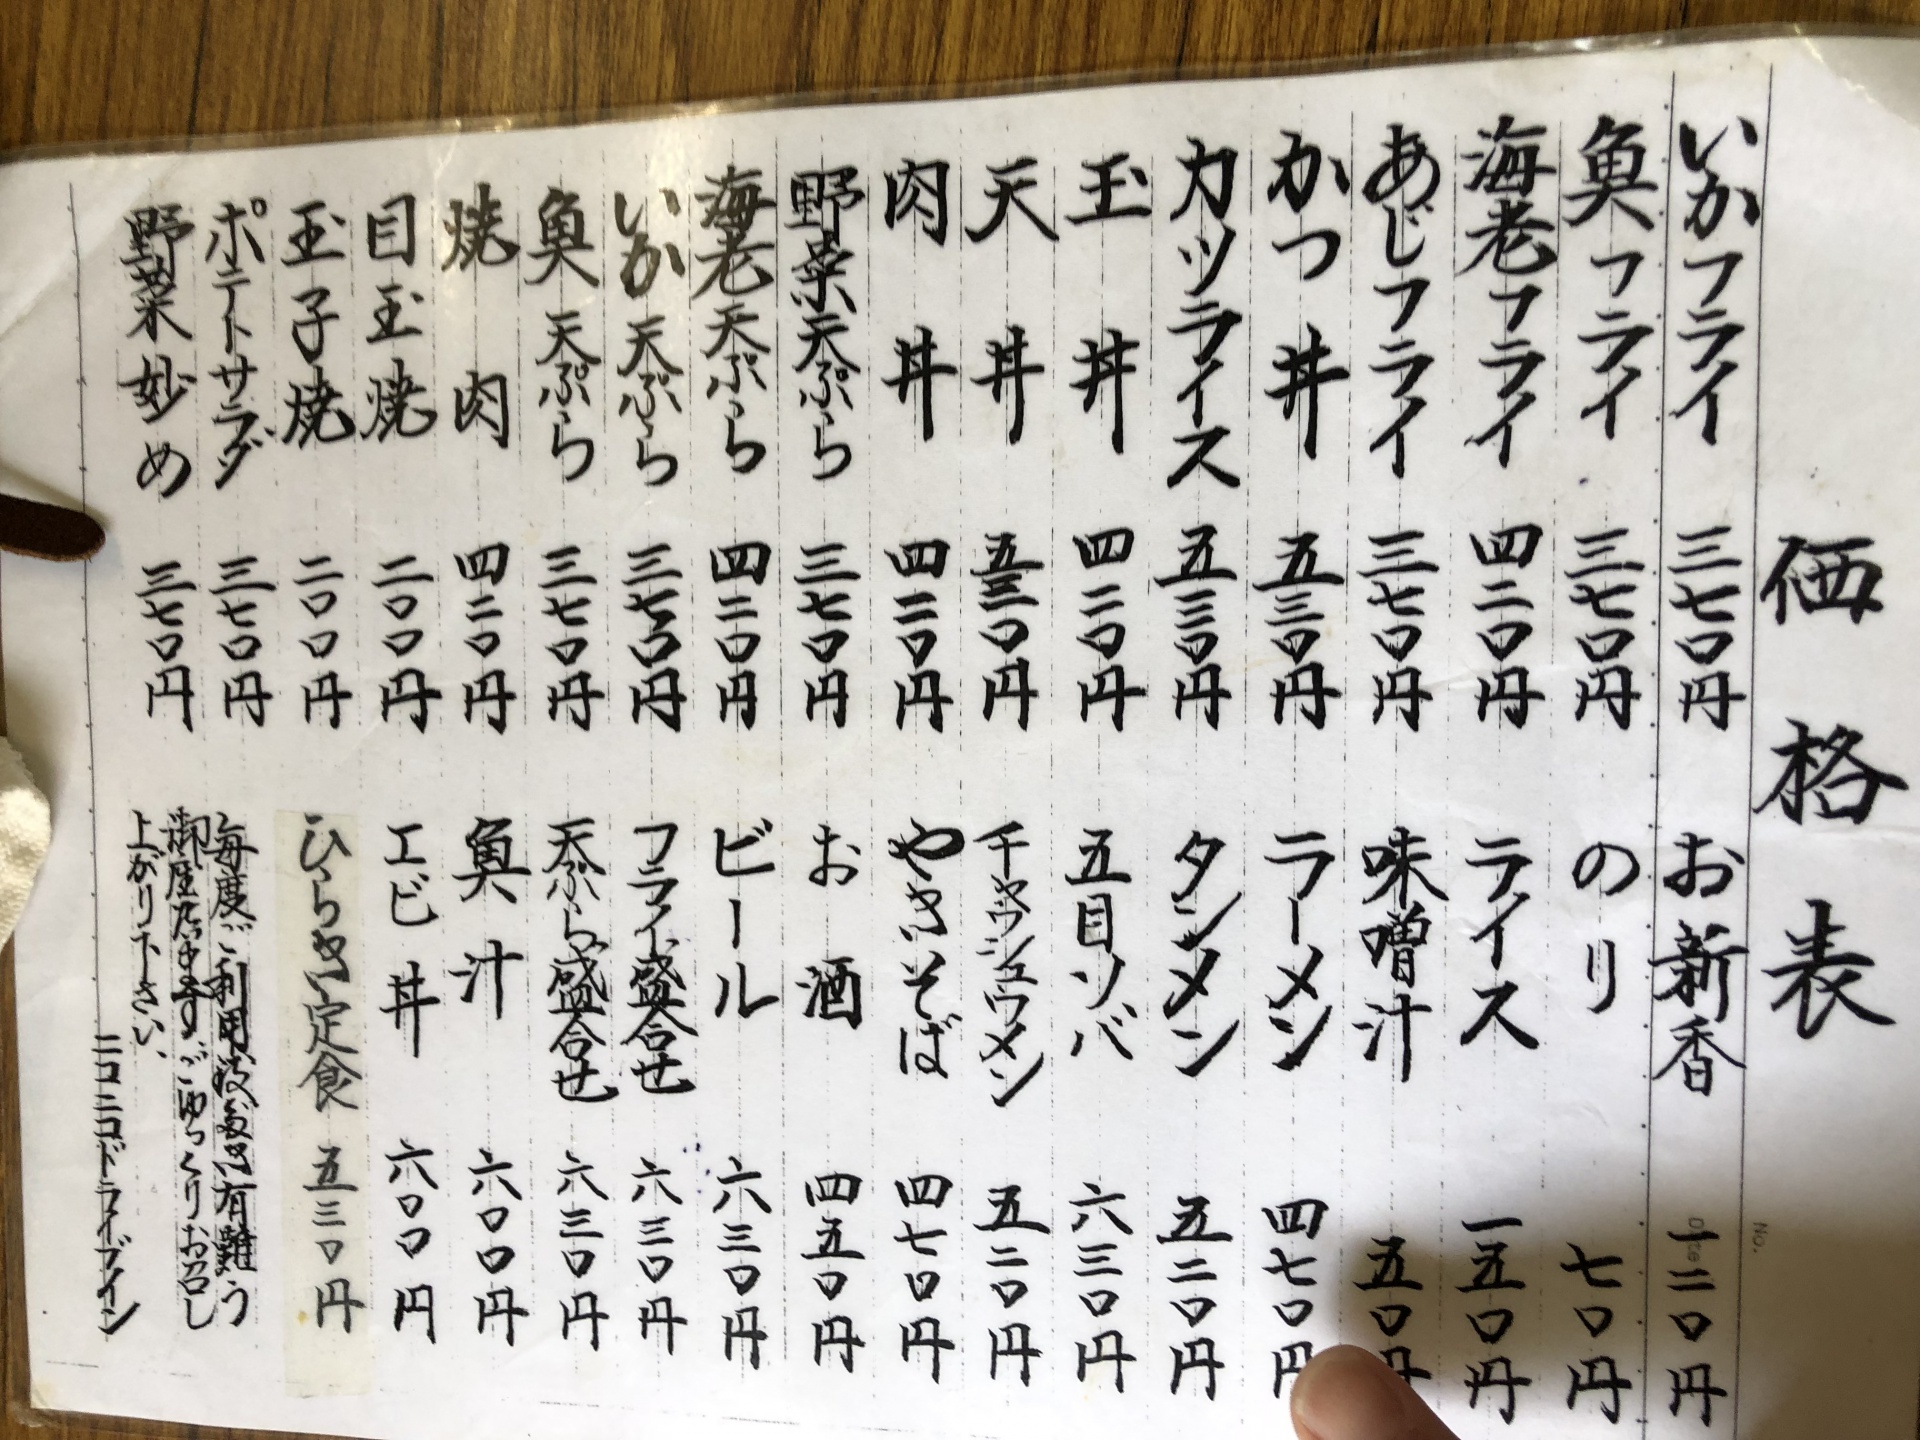 価格表
いかフライ 三七〇円
魚フライ 三七〇円
海老フライ 四二〇円
あじフライ 三七〇円
かつ丼 五三〇円
カツライス 五三〇円
玉丼 四二〇円
天丼 五三〇円
肉丼 四二〇円
野菜天ぷら 三七〇円
海老天ぷら 四二〇円
いか天ぷら 三七〇円
魚天ぷら 三七〇円
焼肉 四二〇円
目玉焼 二〇〇円
玉子焼 二〇〇円
ポテトサラダ 三七〇円
野菜妙め 三七〇円
お新香 一二〇円
のり 七〇円
ライス 一五〇円
味噌汁 五〇円
ラーメン 四七〇円
タンメン 五二〇円
五目ソバ 六三〇円
チャウシュウメン 五二〇円
やきそば 四七〇円
お酒 四五〇円
ビール 六三〇円
フライ盛合せ 六三〇円
天ぷら盛合せ 六三〇円
魚汁 六〇〇円
エビ丼 六〇〇円
ひらき定食 五三〇円
毎度ご利用下さいまして有難う
御座居ます。ごゆっくりお召し
上がり下さい、
ニコニコドライブイン
No.
Date